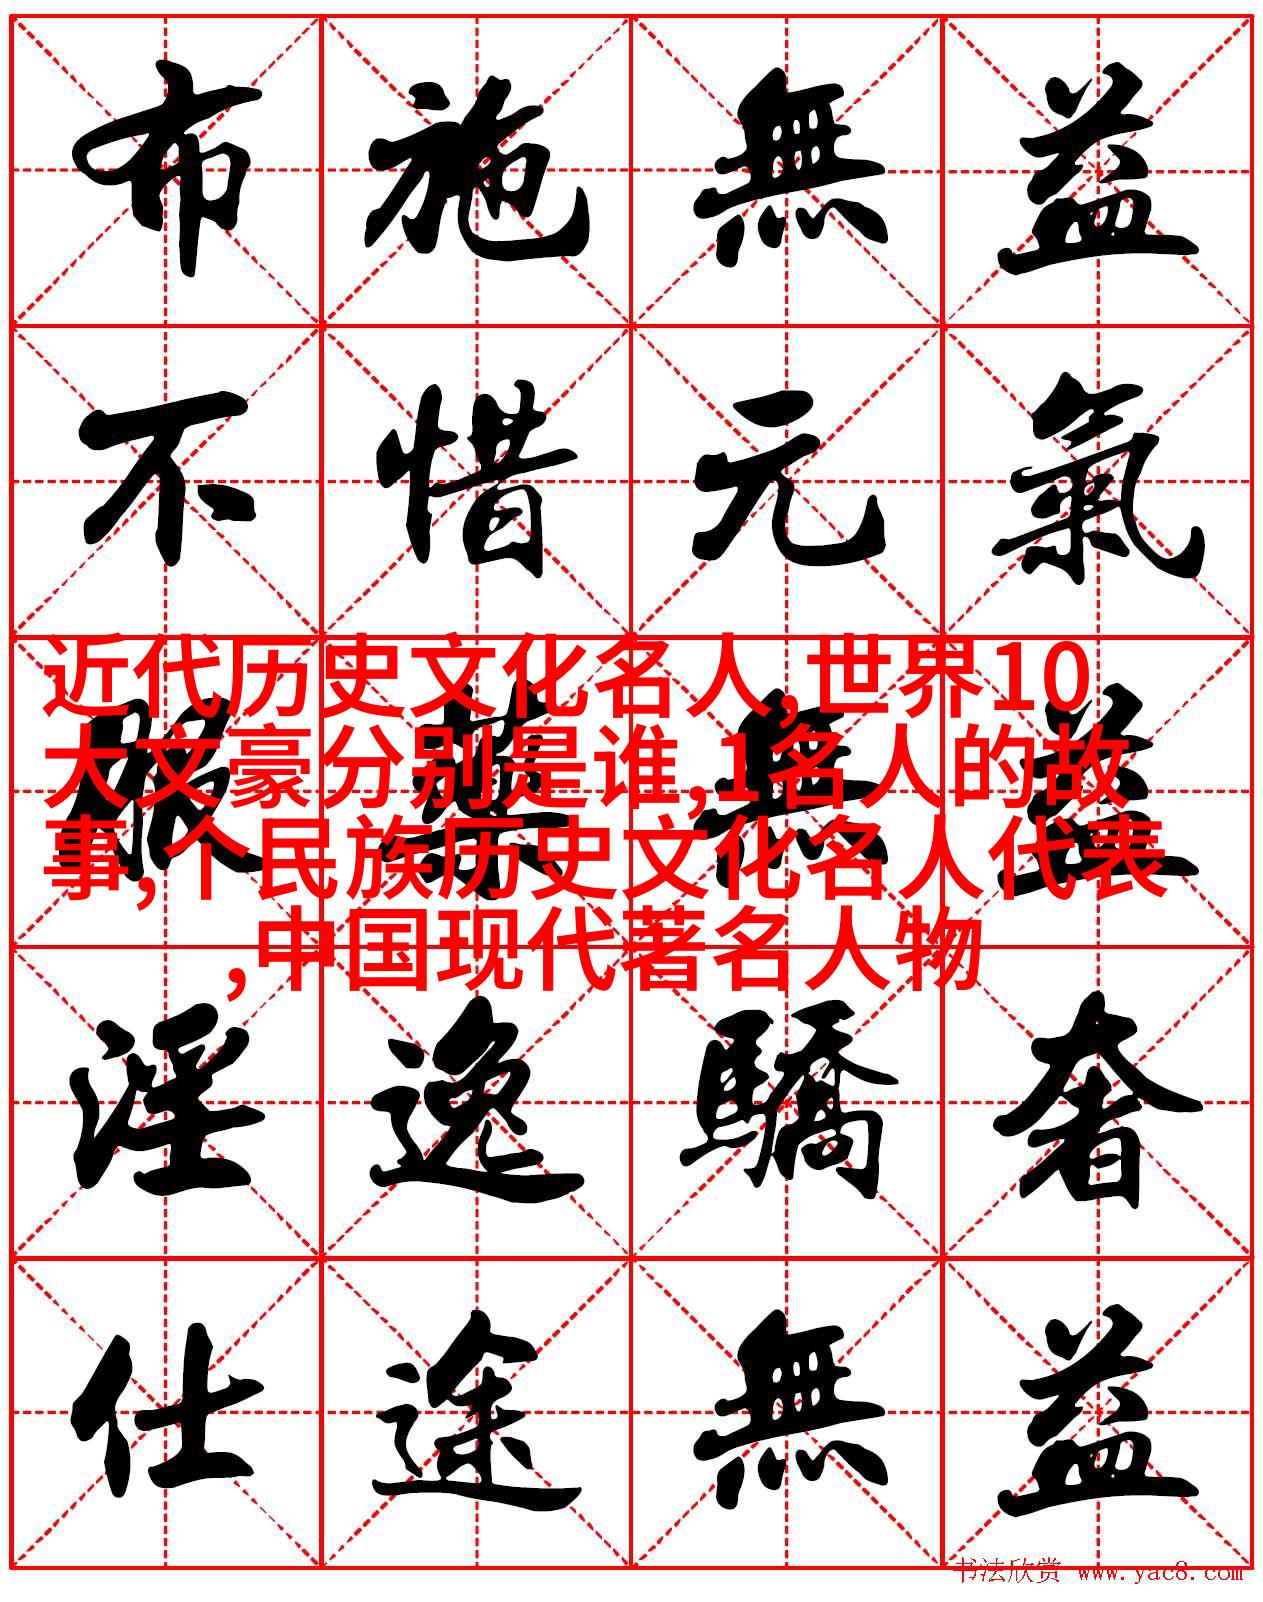 布施無益
不惜元氣
近代历史文化名人,世界10
大文豪分别是谁,1名人的故
事,个民族历史文化名人代表
,中国现代著名人物
服藥無益
淫逸驕奢
仕途無益
书法欣赏 www.yac8.com